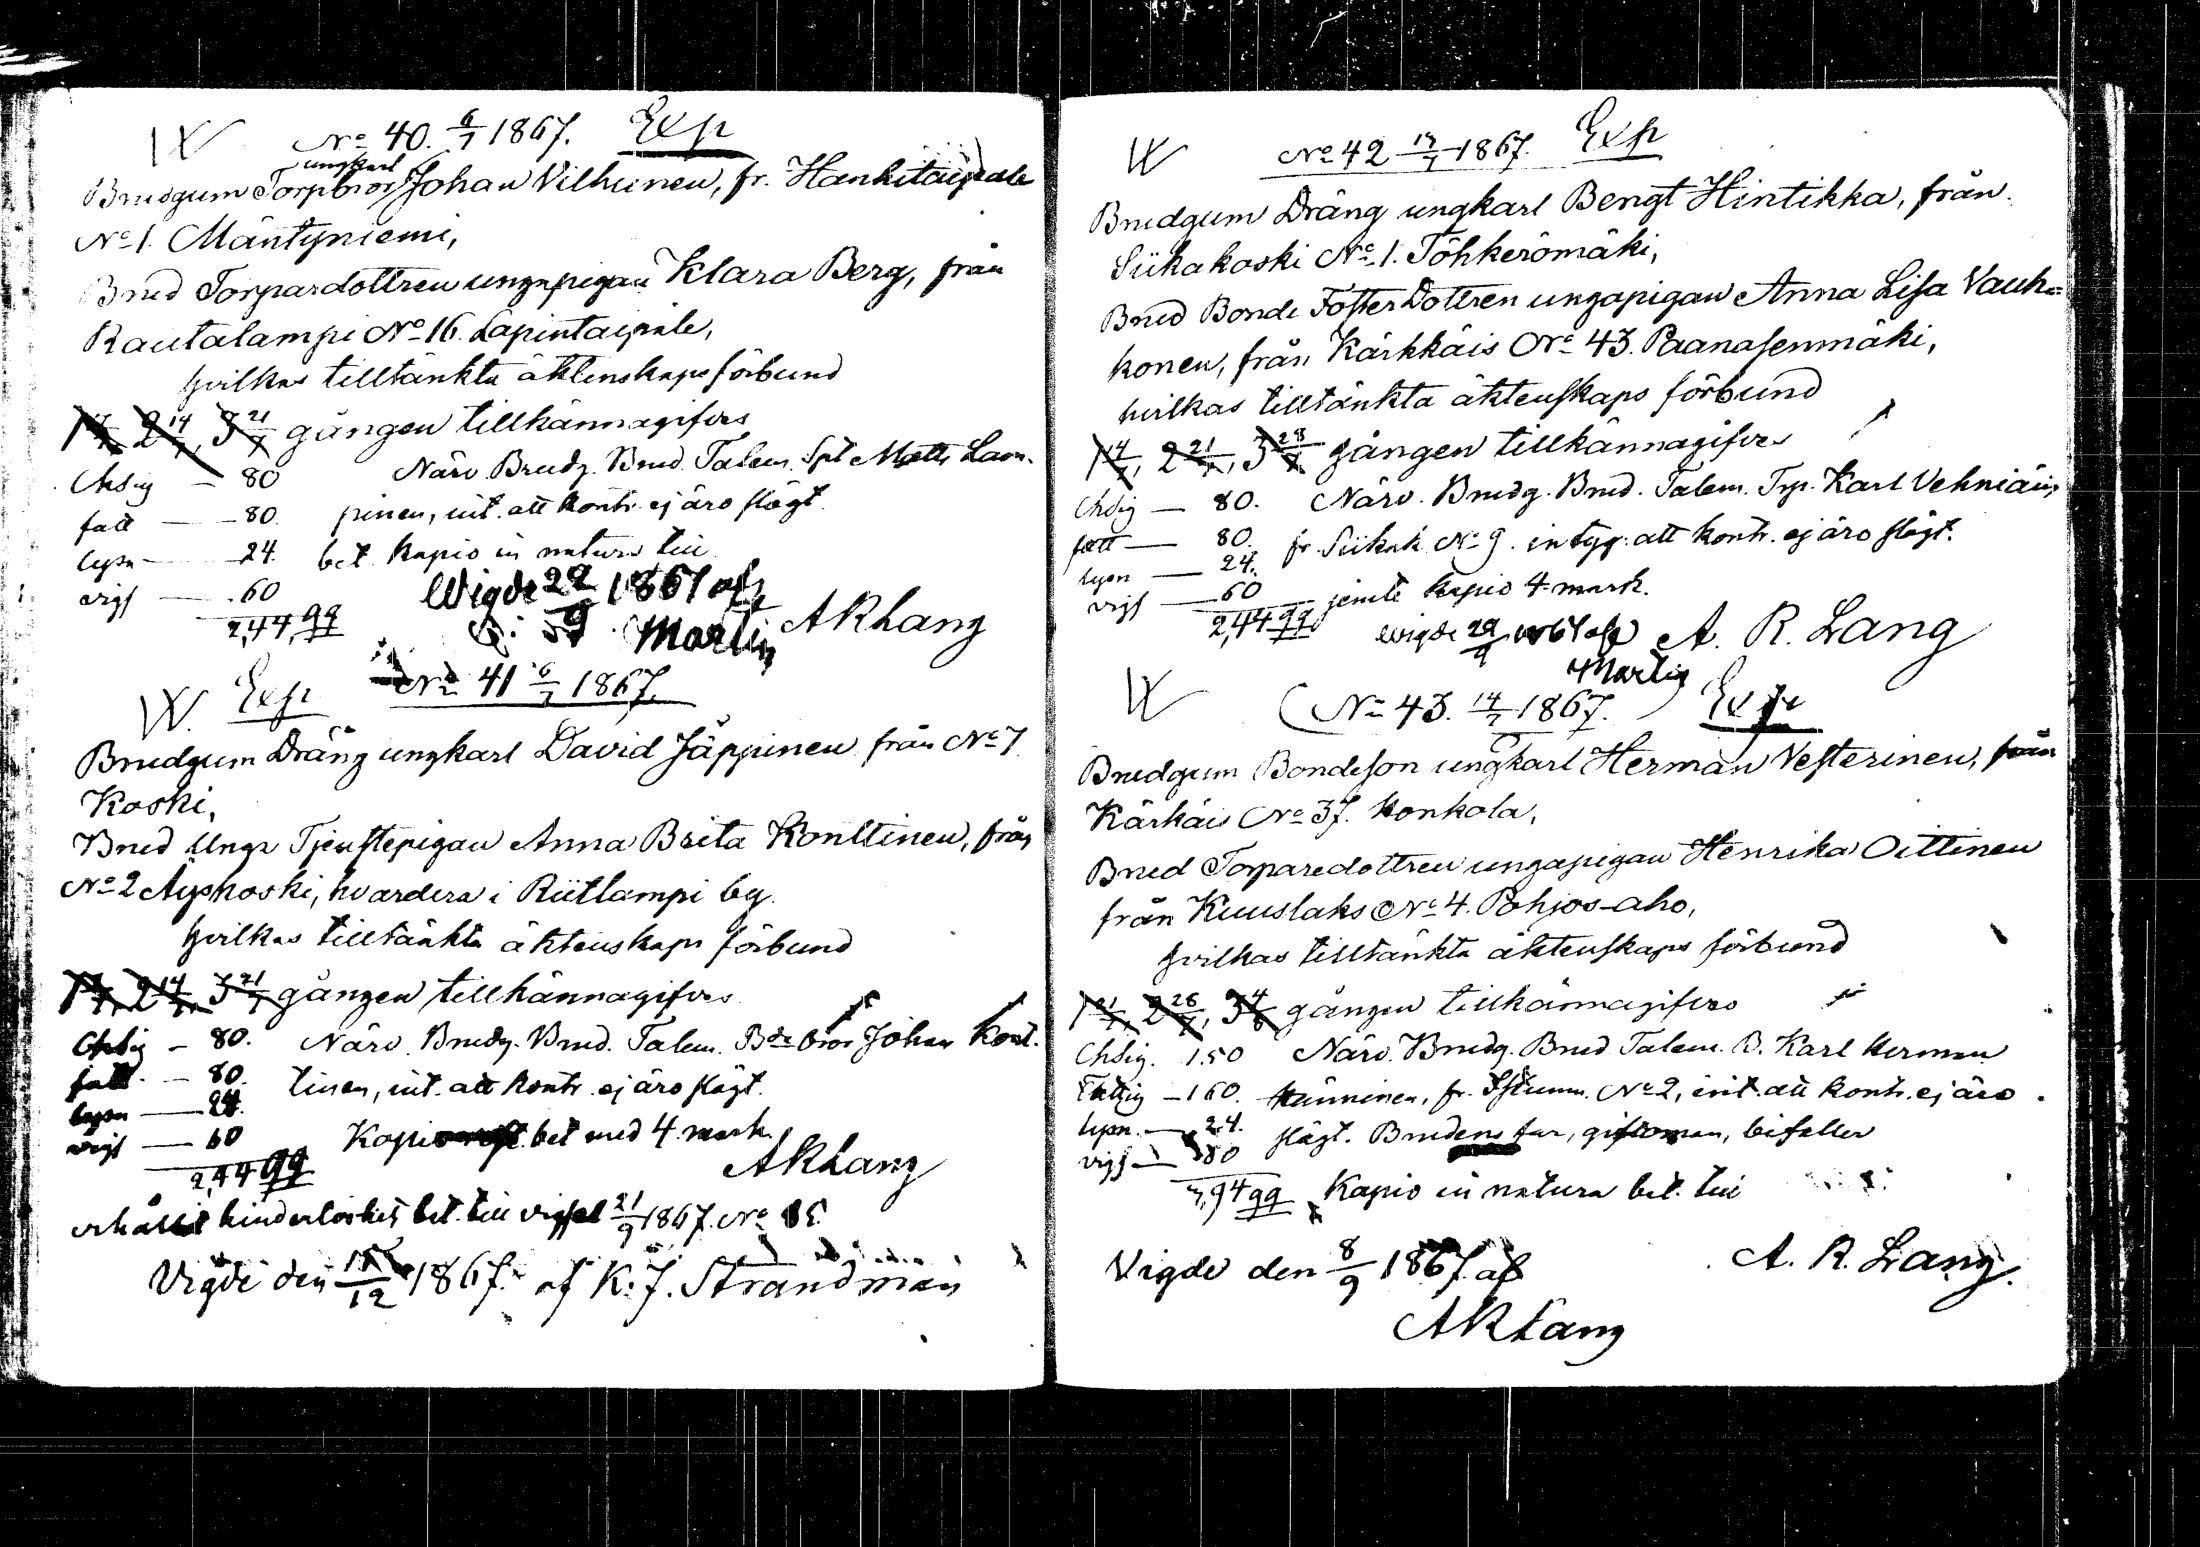 W No 40. 6/7 1867. Exp
ungkarl
Brudgum Torpbror Johan Vilhunen, fr. Hankitaipale
No 1. Mäntyniemi,
Brud Torpardottren ungapigan Klara Berg, från
Rautalampi No 16. Lapintaipale,
hvilkas tilltänkta äktenskaps förbund
1 7/7, 2 14/7, 3 21/7 gången tillkännagifves
Chsig — 80 Närv. Brudg. Brud. Talem. Spt Matts Laon-
fatt — 80. pinen, int. att kontr. ej äro slägt.
lysn — 24. bet. Kapio in natura till
vigs — .60 Wigde 22/9 1867 af
2,44,99 Martin A R Lang
W. Exp No 41 6/7 1867.
Brudgum Dräng ungkarl David Jäppinen från No 7
Koski,
Brud Unga Tjenstepigan Anna Brita Konttinen, från
No 2 Äyskoski, hvardera i Riitlampi by.
hvilkas tilltänkta äktenskaps förbund
1 7/7, 2 14/7, 3 21/7 gången tillkännagifves
Chsig — 80. Närv. Brudg. Brud. Talem. Bde bror Johan Kont-
fatt — 80. tinen, int. att kontr. ej äro slägt.
lysn — 24.
vigs — 60 Kapio bet med 4 mark.
2,44 99 A R Lang
erhållit hinderlöshet bet. till vigsel 21/9 1867. No
Vigde den /12 1867. af K. J. Strandman
W No 42 13/7 1867. Exp
Brudgum Dräng ungkarl Bengt Hintikka, från
Siikakoski No 1. Töhkerömäki,
Brud Bonde Foster Dottren ungapigan Anna Lisa Vauh-
konen, från Kärkkäis No 43. Paanasenmäki,
hvilkas tilltänkta äktenskaps förbund
1 14/7, 2 21/7, 3 28/7 gången tillkännagifves
Chsig — 80. Närv. Brudg. Brud. Talem. Trp. Karl Vehniäin,
fatt — 80. fr. Siikak. No 9. intyg. att kontr. ej äro slägt.
lysn — 24.
vigs — 60 jemte Kapio 4 mark.
2,44 99 Wigde 29/9 1867 af A. R. Lang
Martin
W No 43. 14/7 1867. Exp
Brudgum Bondeson ungkarl Herman Vesterinen, från
Kärkäis No 37. Konkola,
Brud Torparedottren ungapigan Henrika Oittinen
från Kuuslaks No 4. Pohjos-aho,
hvilkas tilltänkta äktenskaps förbund
1 21/7, 2 28/7, 3 4/8 gången tillkännagifves
Chsig. 1.50 Närv. Brudg. Brud Talem. B. Karl Herman
Fattig — 1 60. Hänninen, fr. No 2, int. att kontr. ej äro
lysn. — 24. slägt. Brudens far, giftoman, bifaller
vigs — 80
94 99 Kapio in natura bet. till
Vigde den 8/9 1867. af A. R. Lang.
A R Lang